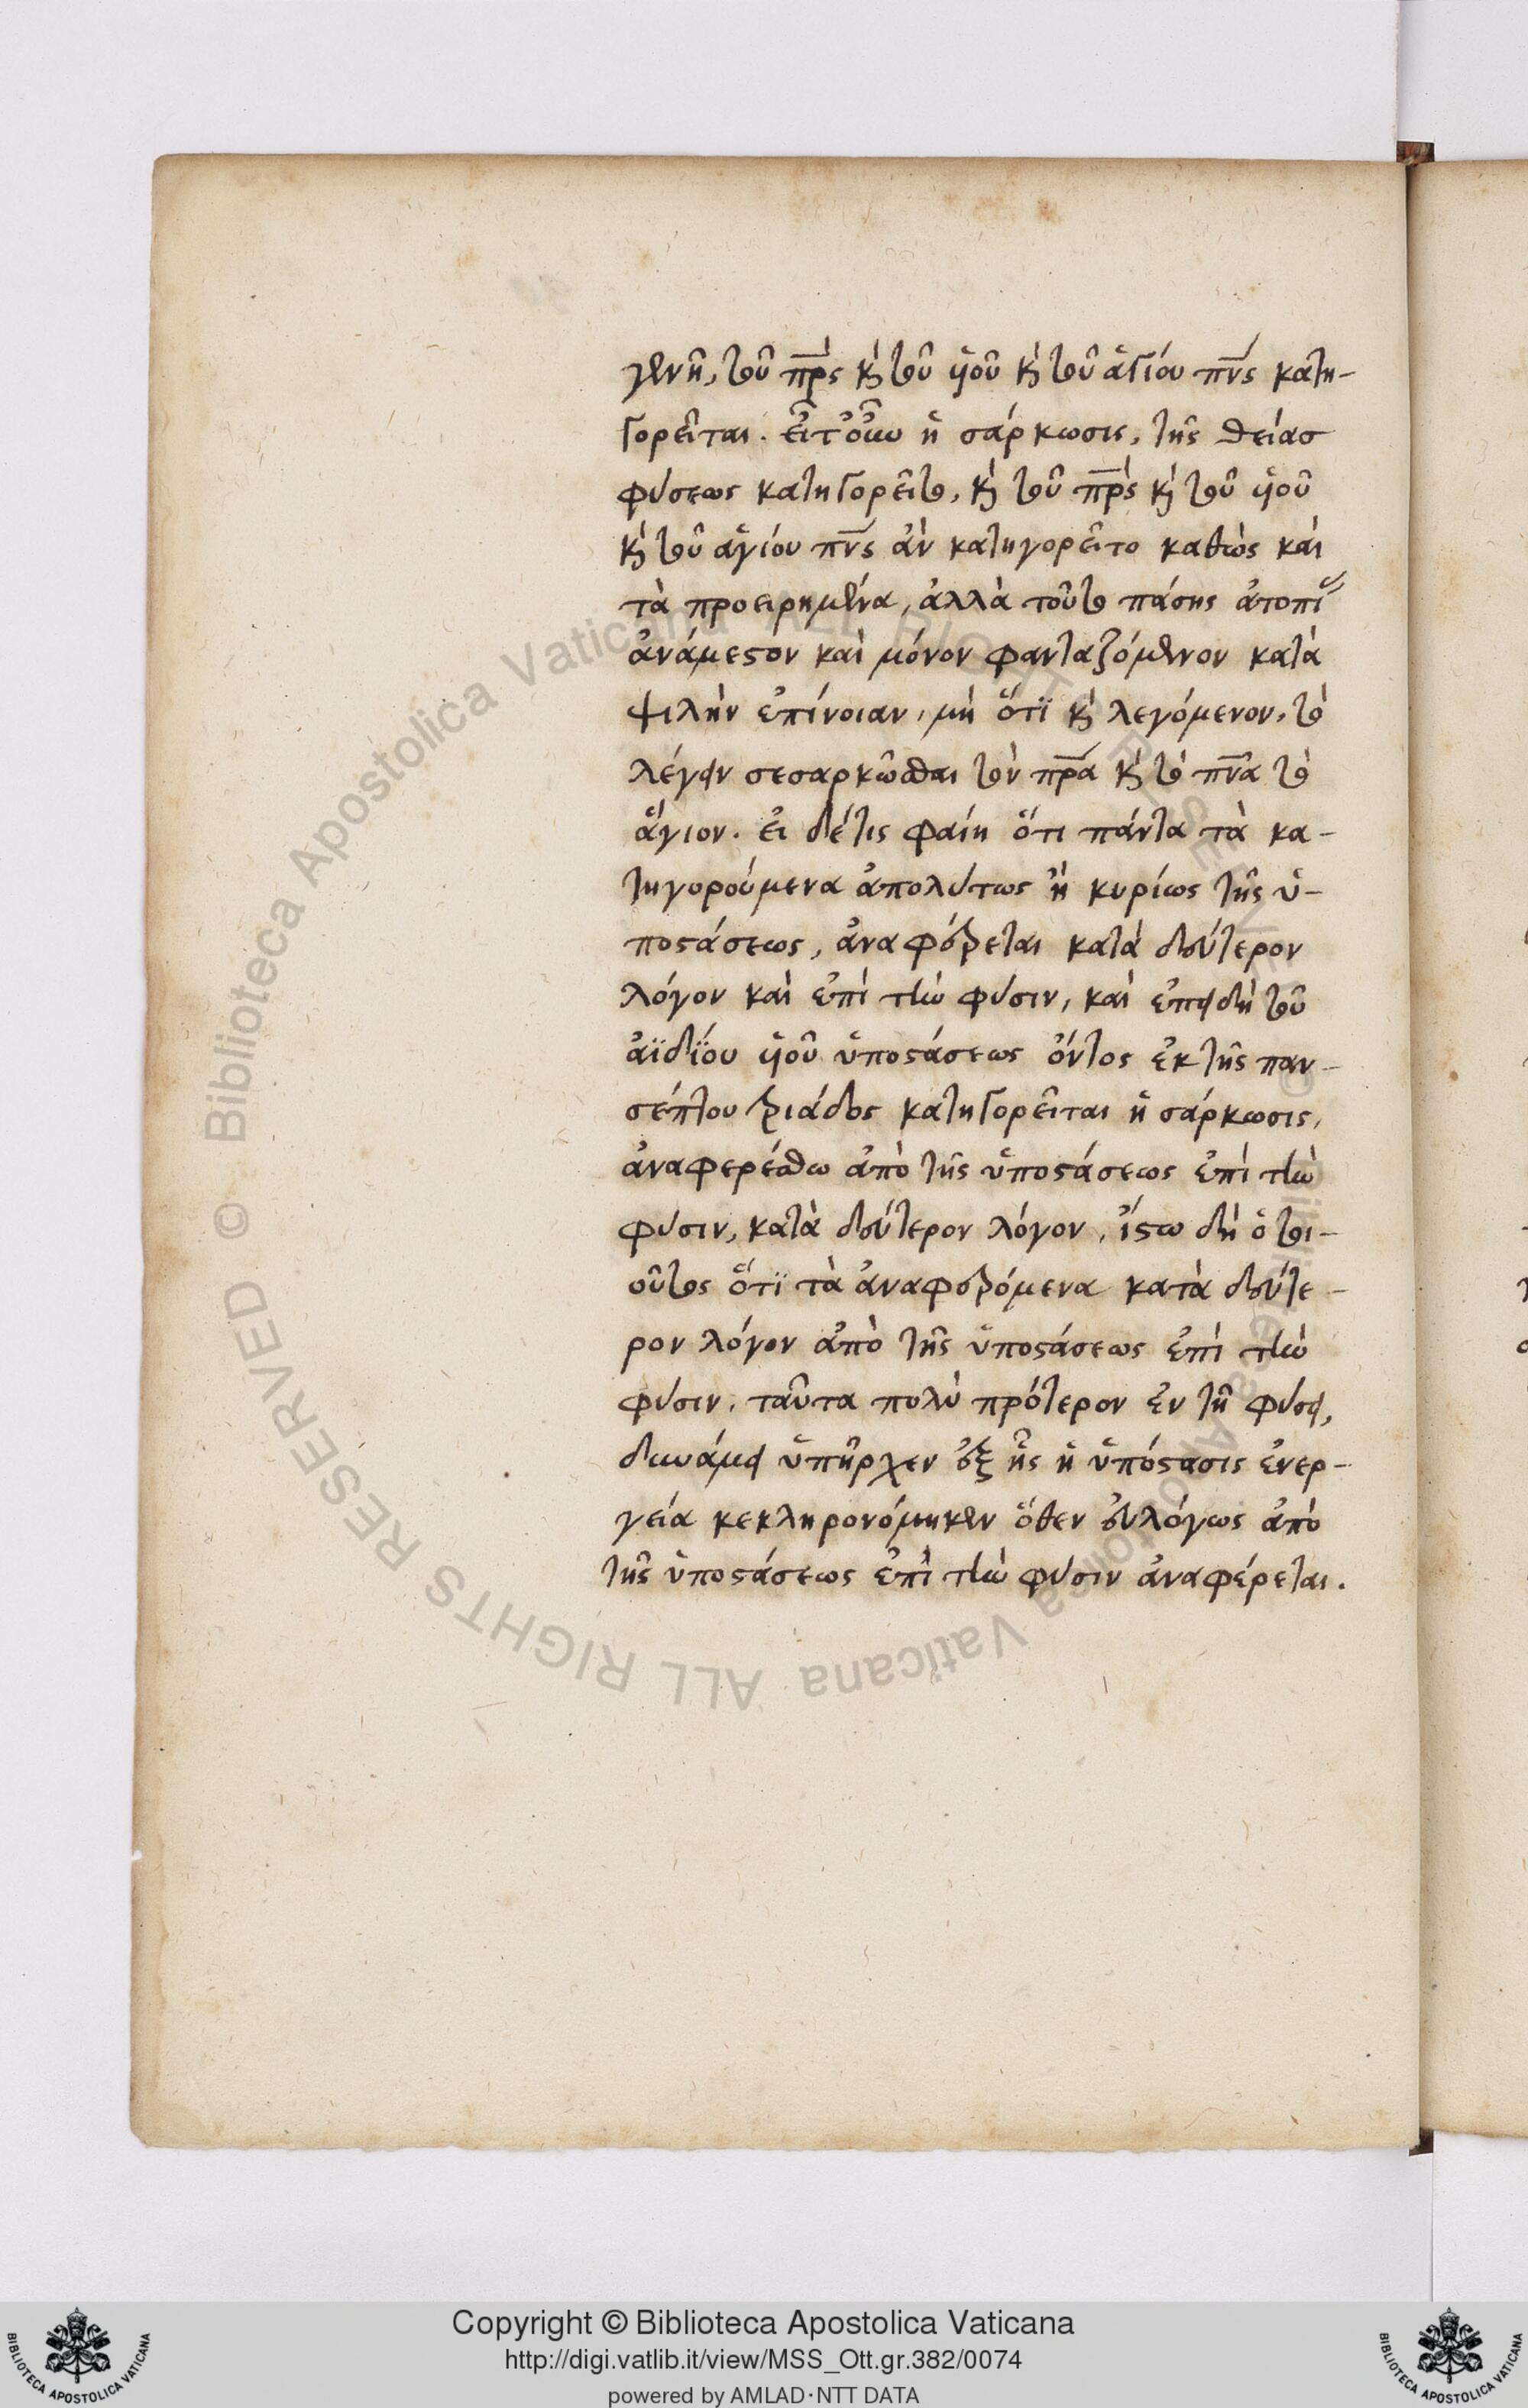 γενῆ, τοῦ πρ̅ς κὴ τοῦ ὑοῦ κὴ τοῦ ἁγίου πν̅ς κατη-
γορεῖται. εἶ τ' οὖν ἡ σάρκωσις, τῆς θείας
φύσεως κατηγορεῖτο, κὴ τοῦ πρ̅ς κὴ τοῦ ὑοῦ
κὴ τοῦ ἁγίου πν̅ς ἂν κατηγορεῖτο καθὼς καὶ
τὰ προειρημένα, ἀλλὰ τοῦτο πάσης ἀτοπί
ἀνάμεστον καὶ μόνον φανταζόμενον κατὰ
ψιλὴν ἐπίνοιαν, μὴ ὅτϊ κὴ λεγόμενον, τὸ
λέγειν σεσαρκῶσθαι τὸν πρ̅α κὴ τὸ πν̅α τὸ
ἅγιον. εἰ δέ τις φαίη ὅτι πάντα τὰ κα-
τηγορούμενα ἀπολύτως ἢ κυρίως τῆς ὑ-
ποστάσεως, ἀναφέρεται κατὰ δεύτερον
λόγον καὶ ἐπὶ τὴν φύσιν, καὶ ἐπειδὴ τοῦ
ἀϊδΐου ὑοῦ ὑποστάσεως ὄντος ἐκ τῆς παν-
σέπτου τριάδος κατηγορεῖται ἡ σάρκωσις,
ἀναφερέσθω ἀπὸ τῆς ὑποστάσεως ἐπὶ τὴν
φύσιν, κατὰ δεύτερον λόγον, ἴστω δὴ ὁ τοι-
οῦτος ὅτϊ τὰ ἀναφερόμενα κατὰ δεύτε-
ρον λόγον ἀπὸ τῆς ὑποστάσεως ἐπὶ τὴν
φύσιν, ταῦτα πολὺ πρότερον ἐν τῇ φύσει,
δυνάμει ὑπῆρχεν ἐξ ἧς ἡ ὑπόστασις ἐνερ-
γεία κεκληρονόμηκεν ὅθεν εὐλόγως ἀπὸ
τῆς ὑποστάσεως ἐπὶ τὴν φύσιν ἀναφέρεται.
Copyright © Biblioteca Apostolica Vaticana
http://digi.vatlib.it/view/MSS_Ott.gr.382/0074
powered by AMLAD·NTT DATA
BIBLIOTECA APOSTOLICA VATICANA
BIBLIOTECA APOSTOLICA VATICANA
© Biblioteca Apostolica Vaticana ALL RIGHTS RESERVED
© Biblioteca Apostolica Vaticana ALL RIGHTS RESERVED